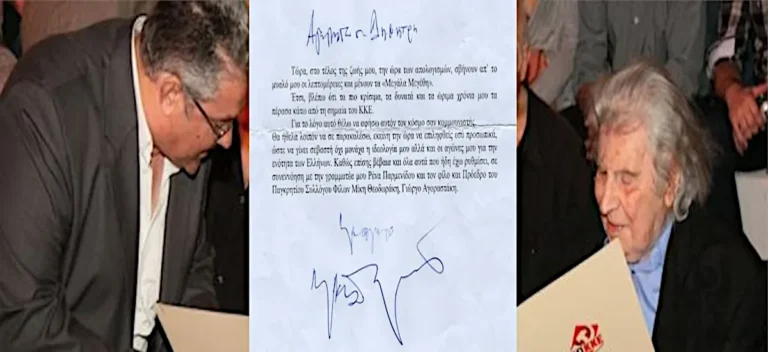 Αγαπητέ Δημήτρη
Τώρα, στο τέλος της ζωής μου, την ώρα των απολογισμών, σβήνουν απ' το
μυαλό μου οι λεπτομέρειες και μένουν τα «Μεγάλα Μεγέθη».
Έτσι, βλέπω ότι τα πιο κρίσιμα, τα δυνατά και τα ώριμα χρόνια μου τα
πέρασα κάτω από τη σημαία του ΚΚΕ.
Για το λόγο αυτό θέλω να αφήσω αυτόν τον κόσμο σαν κομμουνιστής.
Θα ήθελα λοιπόν να σε παρακαλέσω, εκείνη την ώρα να επιληφθείς εσύ προσωπικά,
ώστε να γίνει σεβαστή όχι μονάχα η ιδεολογία μου αλλά και οι αγώνες μου για την
ενότητα των Ελλήνων. Καθώς επίσης βέβαια και όλα αυτά που ήδη έχω ρυθμίσει, σε
συνεννόηση με την γραμματέα μου Ρένα Παρμενίδου και τον φίλο και Πρόεδρο του
Παγκρητίου Συλλόγου Φίλων Μίκη Θεοδωράκη, Γιώργο Αγοραστάκη.
ΚΚΕ